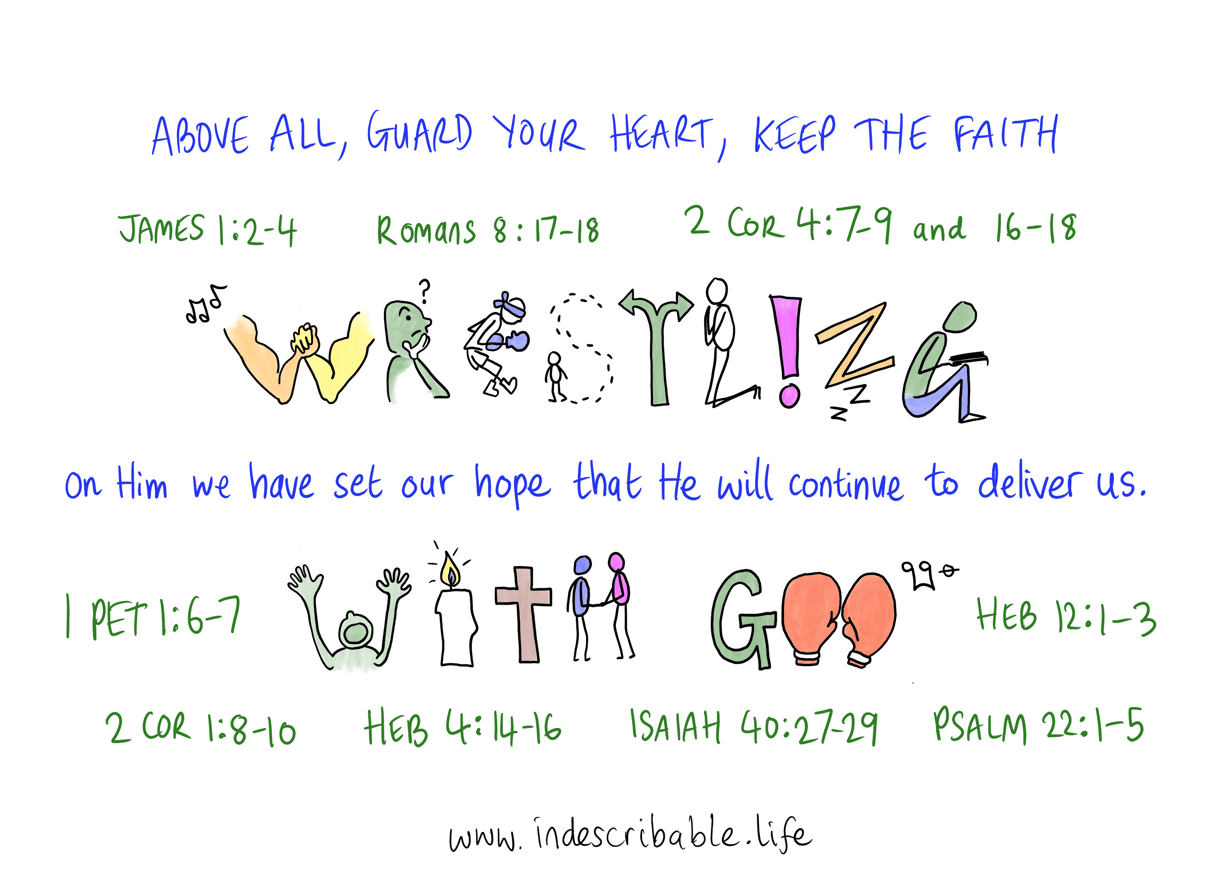 ABOVE ALL, GUARD YOUR HEART, KEEP THE FAITH
JAMES 1:2-4 Romans 8:17-18 2 COR 4:7-9 and 16-18
?
WRESTL!NG
zz
On Him we have set our hope that He will continue to deliver us.
WITH GOD
1 PET 1:6-7 HEB 12:1-3
2 COR 1:8-10 HEB 4:14-16 ISAIAH 40:27-29 PSALM 22:1-5
www.indescribable.life